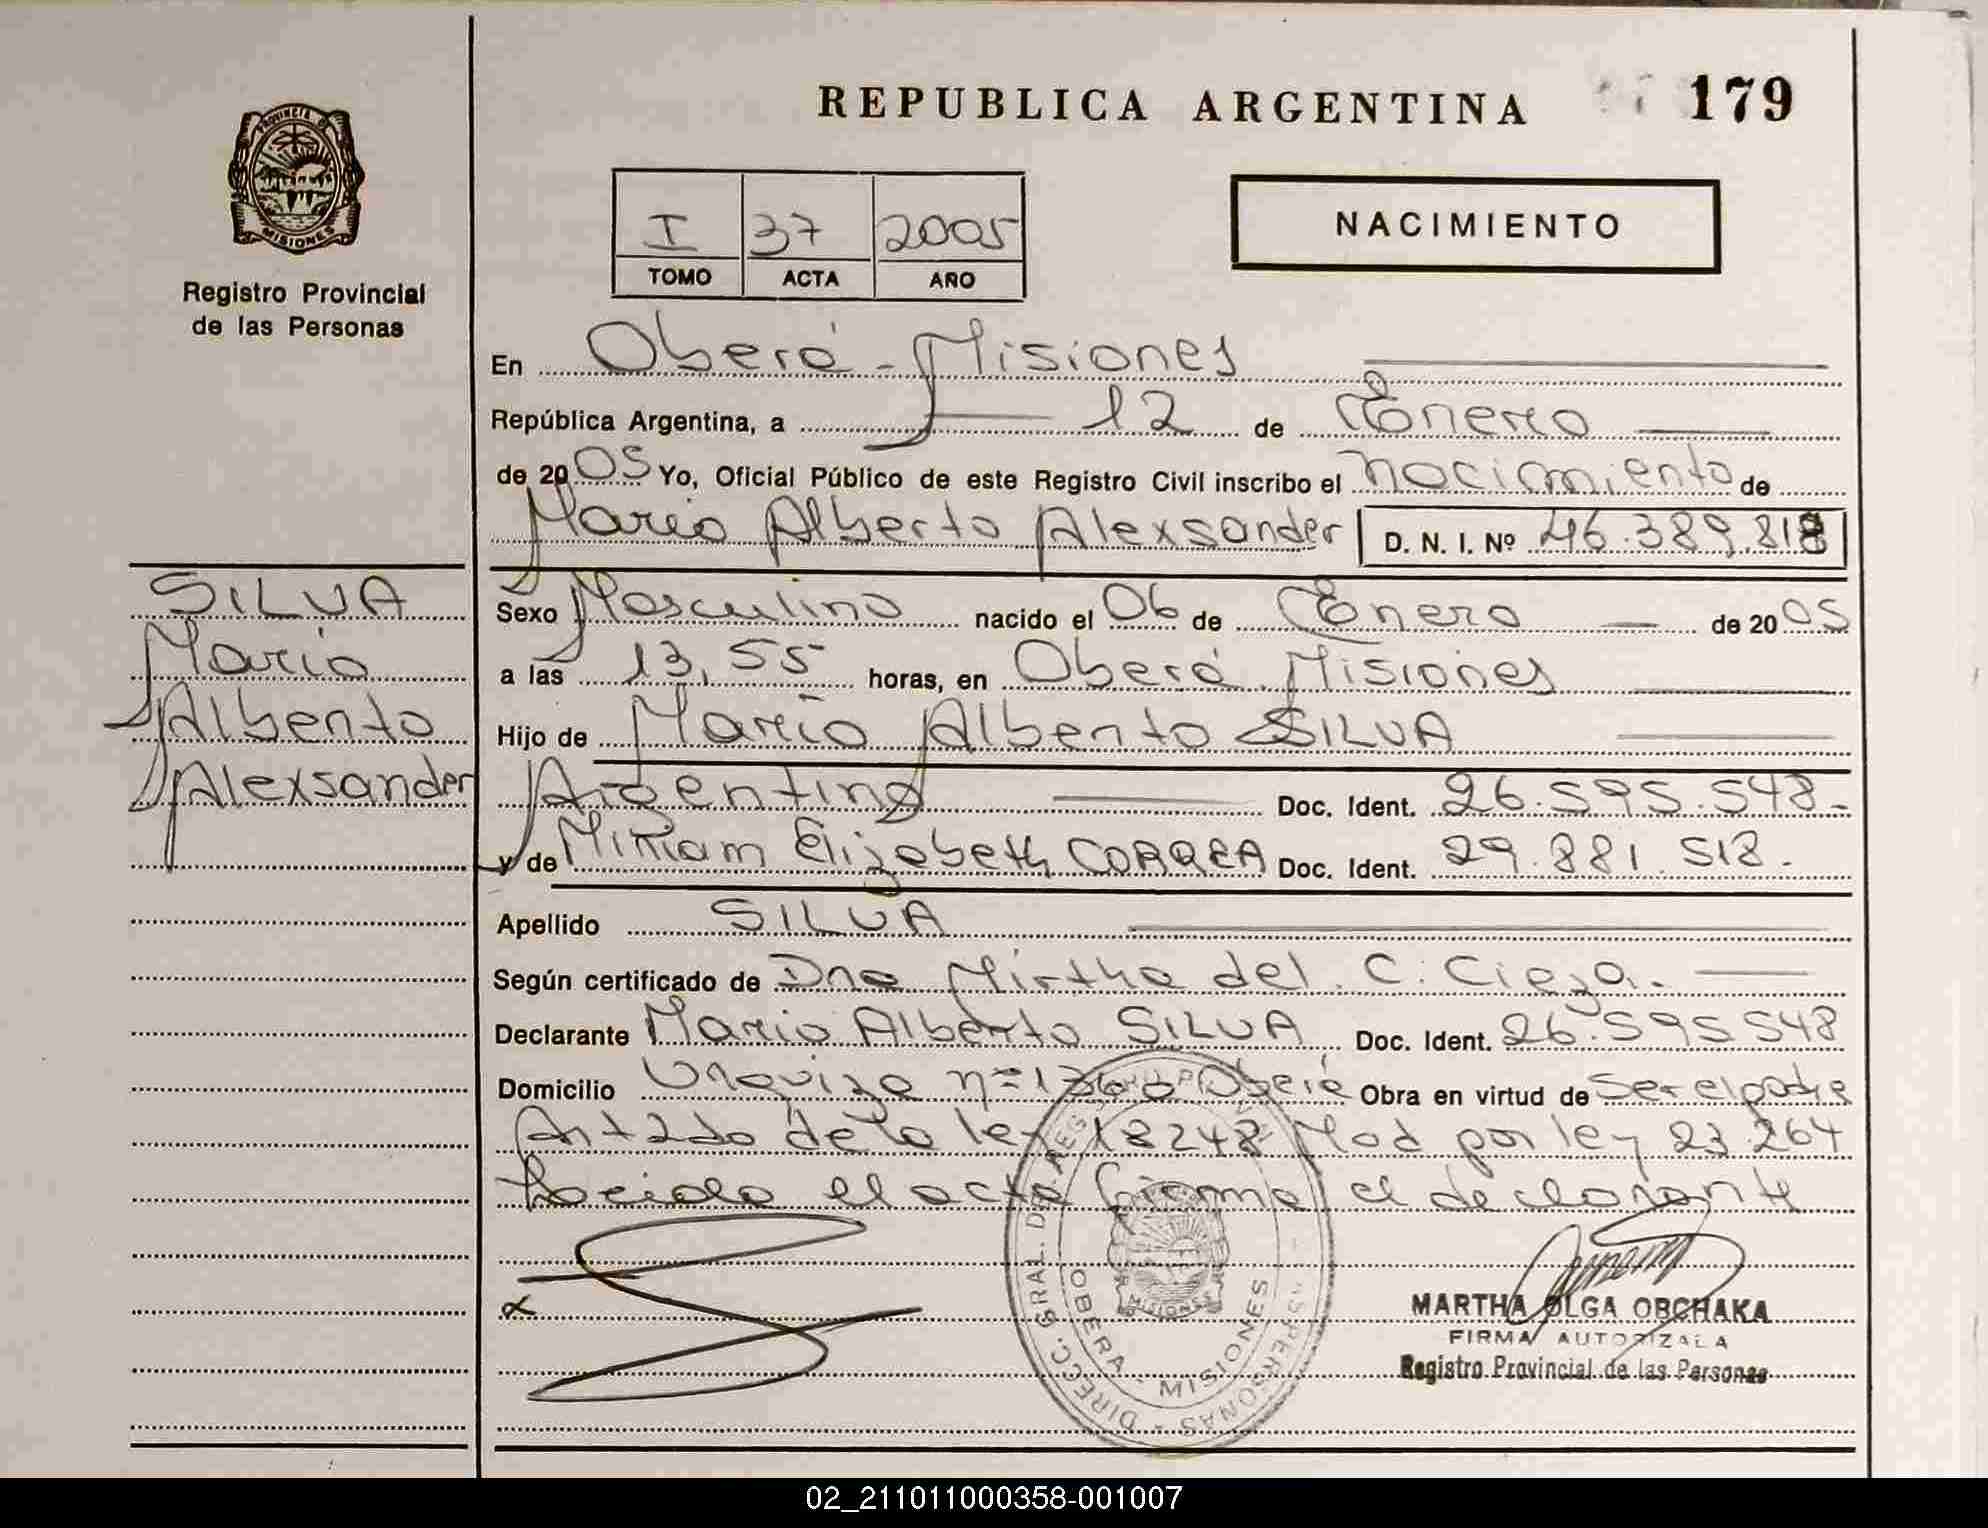 REPUBLICA ARGENTINA 179
PROVINCIA D
MISIONES
Registro Provincial
de las Personas
I 37 2005
TOMO ACTA AÑO
NACIMIENTO
En Oberá - Misiones
República Argentina, a 12 de Enero
de 2005 Yo, Oficial Público de este Registro Civil inscribo el nacimiento de
Mario Alberto Alexsander D. N. I. Nº 46.389.818
SILVA
Mario
Alberto
Alexsander
Sexo Masculino nacido el 06 de Enero de 2005
a las 13,55 horas, en Oberá Misiones
Hijo de Mario Alberto SILVA
Argentino Doc. Ident. 26.595.548.
y de Miriam Elizabeth CORREA Doc. Ident. 29.881.518.
Apellido SILVA
Según certificado de Dna Mirtha del C. Cieza.
Declarante Mario Alberto SILVA Doc. Ident. 26.595.548
Domicilio Urquiza nº 1360 Oberá Obra en virtud de Ser el padre
Art 2do de la ley 18248 Mod por ley 23.264
Leida el acta firma el declarante
DIRECC. GRAL. DEL REGISTRO PROV. DE LAS PERSONAS
OBERA - MISIONES
MISIONES
MARTHA OLGA OBCHAKA
FIRMA AUTORIZADA
Registro Provincial de las Personas
02_211011000358-001007